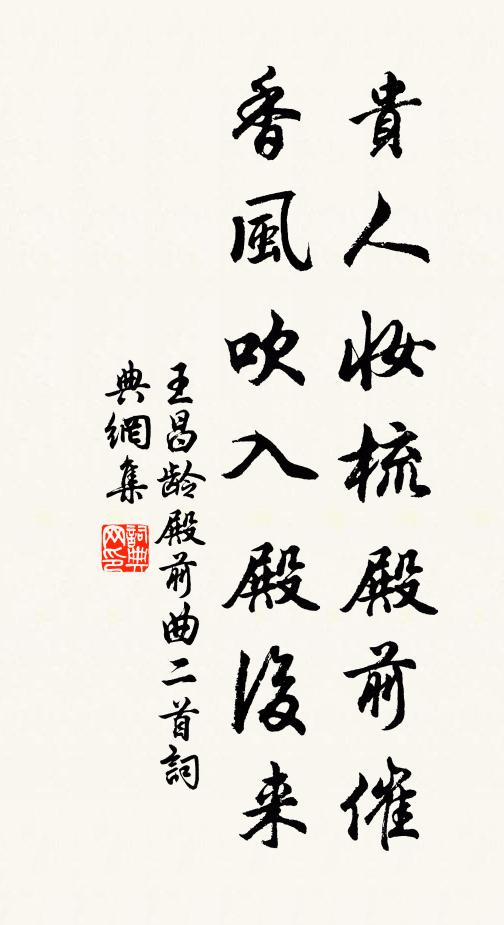 貴人妝梳殿前催
香風吹入殿後来
王昌龄殿前曲二首詞
典網集
詞典
网印